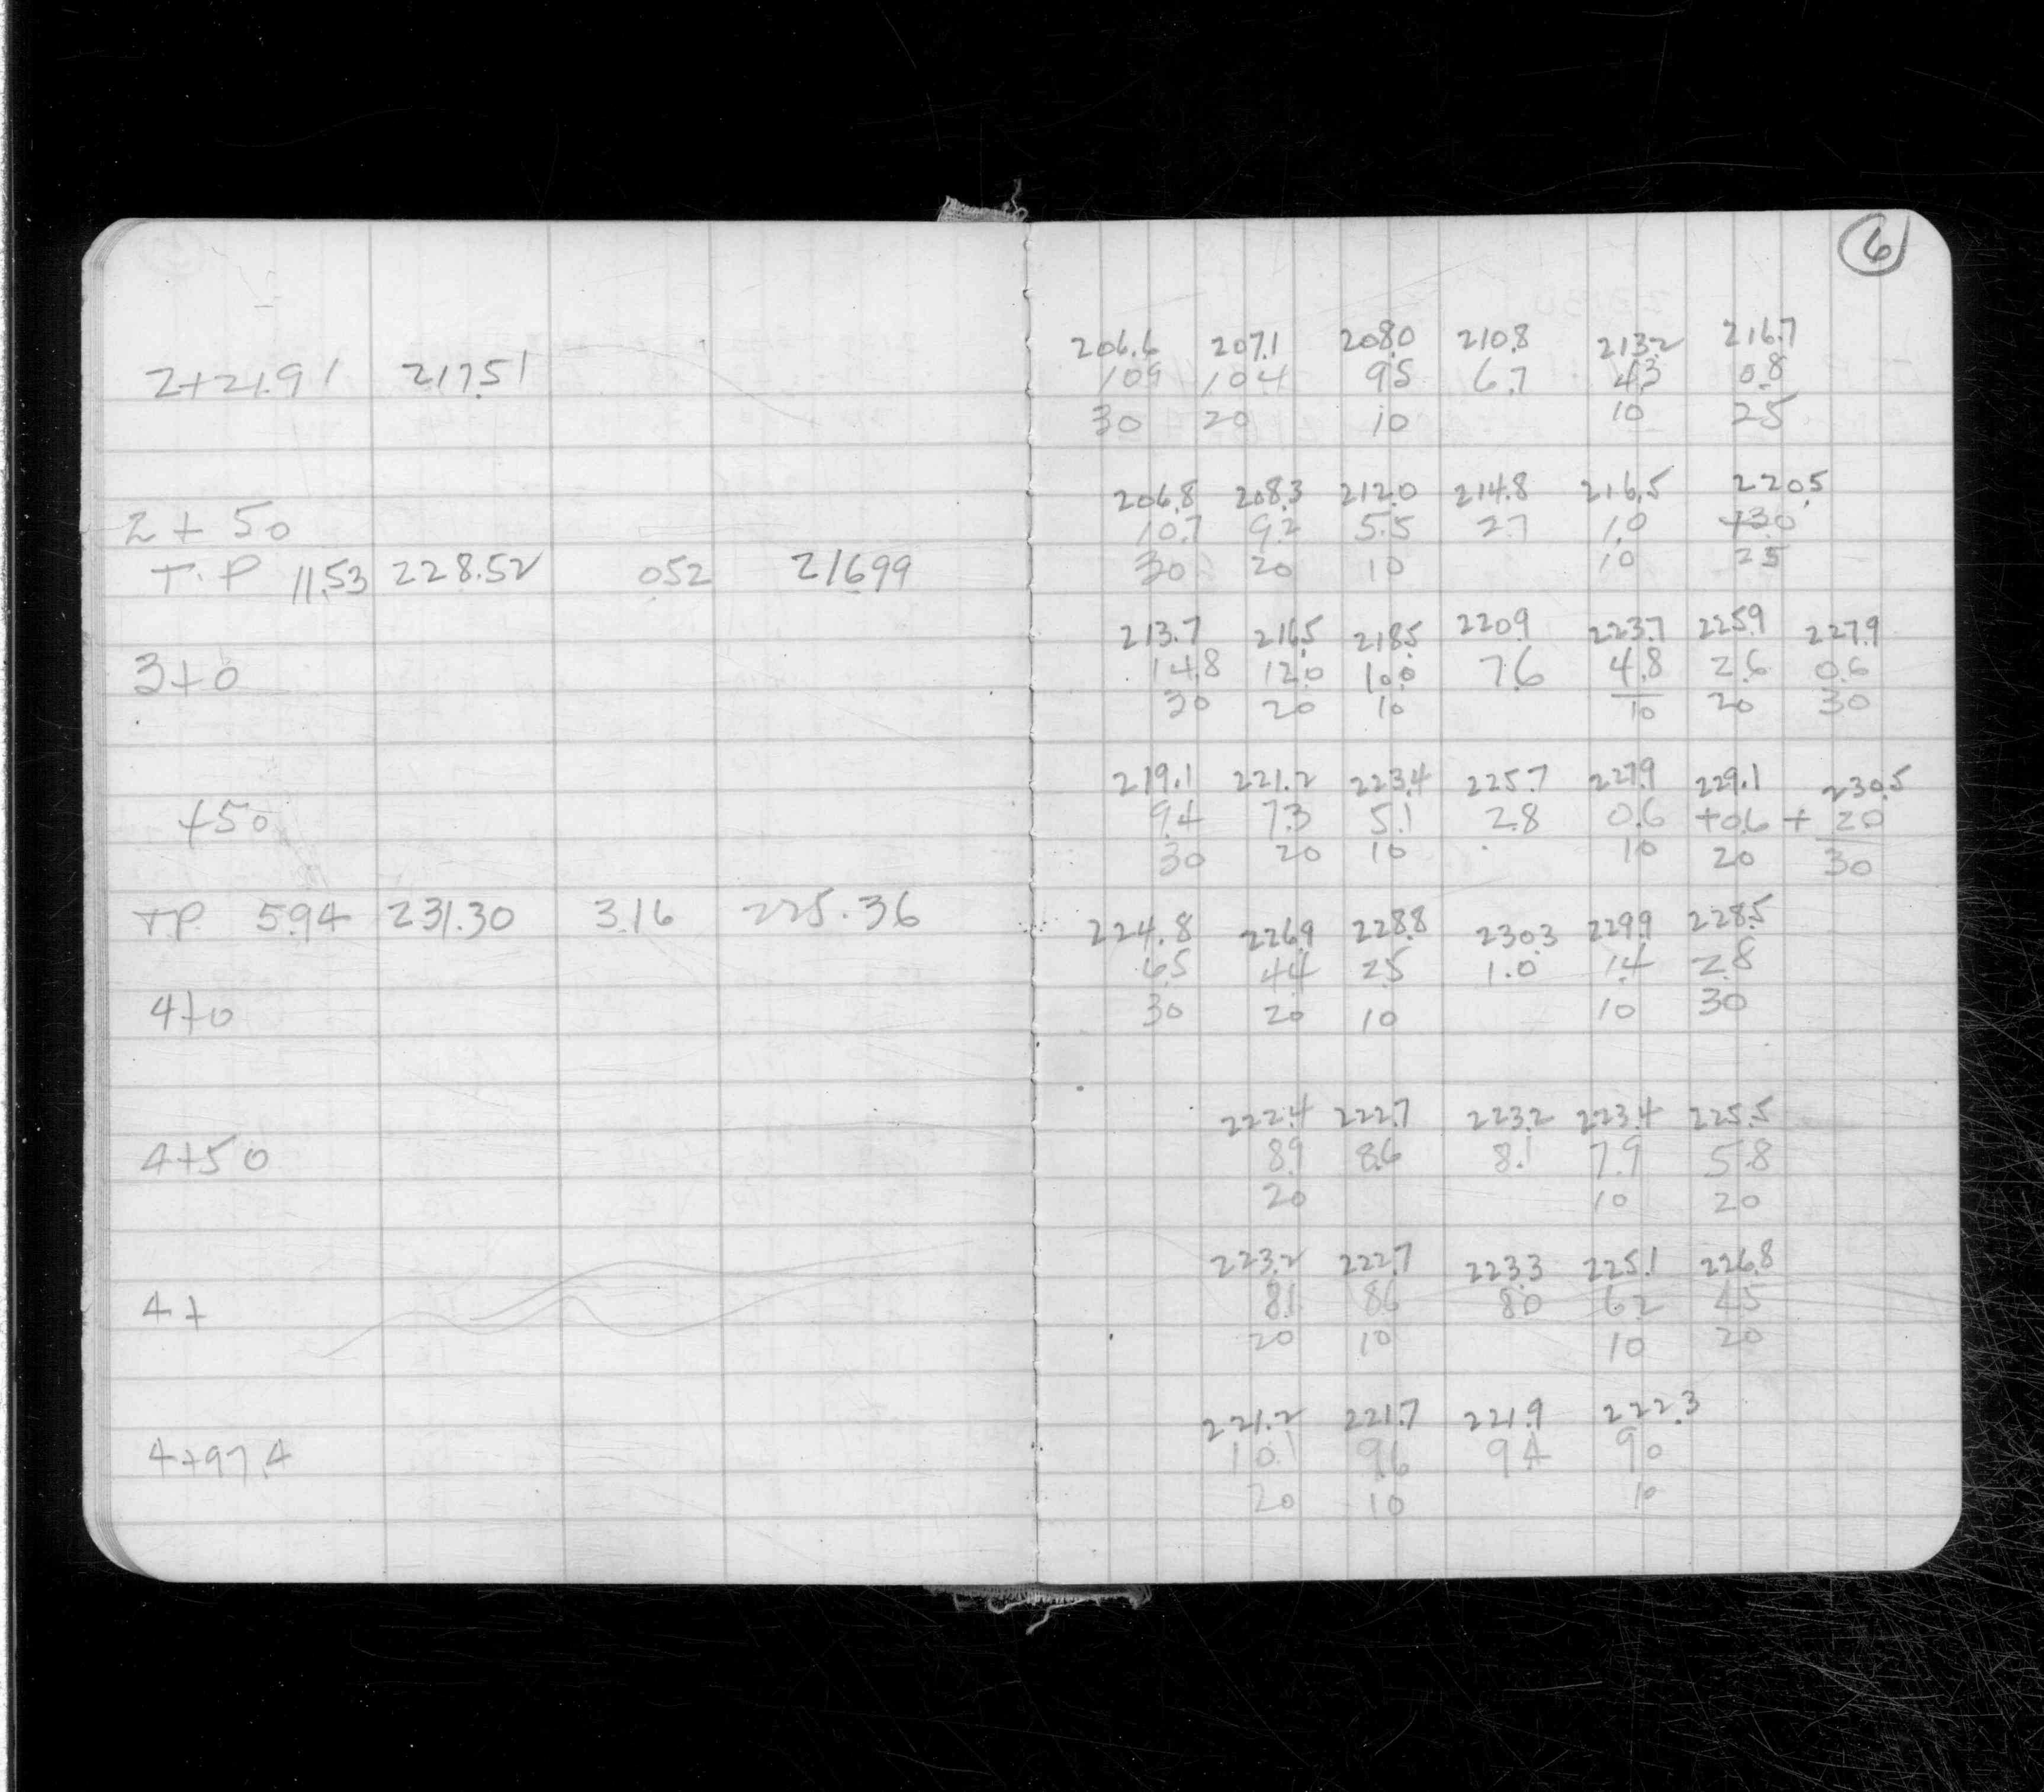 6
206.6 207.1 208.0 210.8 213.2 216.7
2+21.91 217.51 10.9 10.4 9.5 6.7 4.3 0.8
30 20 10 10 25
206.8 208.3 212.0 214.8 216.5 220.5
2+50 10.7 9.2 5.5 2.7 1.0 +3.0
T.P 11.53 228.52 0.52 216.99 30 20 10 10 25
213.7 216.5 218.5 220.9 223.7 225.9 227.9
3+0 14.8 12.0 10.0 7.6 4.8 2.6 0.6
30 20 10 10 20 30
219.1 221.2 223.4 225.7 227.9 229.1 230.5
+50 9.4 7.3 5.1 2.8 0.6 +0.6 + 2.0
30 20 10 10 20 30
T.P. 5.94 231.30 3.16 225.36 224.8 226.9 228.8 230.3 229.9 228.5
6.5 4.4 2.5 1.0 1.4 2.8
4+0 30 20 10 10 30
222.4 222.7 223.2 223.4 225.5
4+50 8.9 8.6 8.1 7.9 5.8
20 10 20
223.2 222.7 223.3 225.1 226.8
4+ 8.1 8.6 8.0 6.2 4.5
20 10 10 20
221.2 221.7 221.9 222.3
4+97.4 10.1 9.6 9.4 9.0
20 10 10